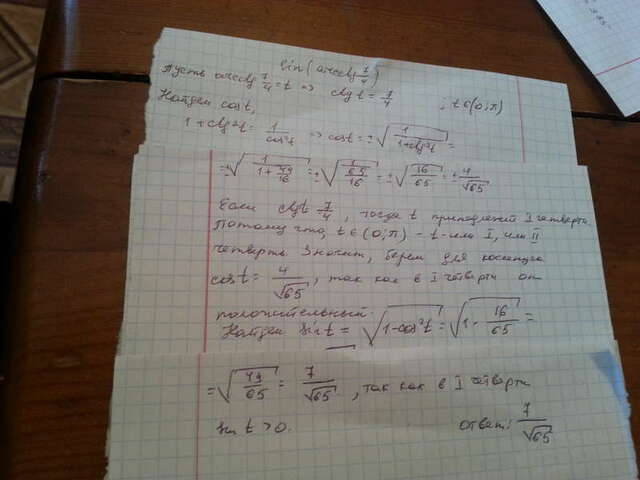 sin(arcctg 7/4)
Пусть arcctg 7/4 = t => ctg t = 7/4 ; t ∈ (0; π)
Найдем cos t,
1 + ctg²t = 1/cos²t => cos t = ±√(1/(1+ctg²t)) =
= ±√(1/(1+49/16)) = ±√(1/(65/16)) = ±√(16/65) = ±4/√65
Если ctg t = 7/4, тогда t принадлежит I четверти.
Потому что, t ∈ (0; π) - t - или I, или II
четверть. Значит, берем для косинуса
cos t = 4/√65, так как в I четверти он
положительный.
Найдем sin t = √(1-cos²t) = √(1 - 16/65) =
= √(49/65) = 7/√65, так как в I четверти
sin t > 0. Ответ: 7/√65